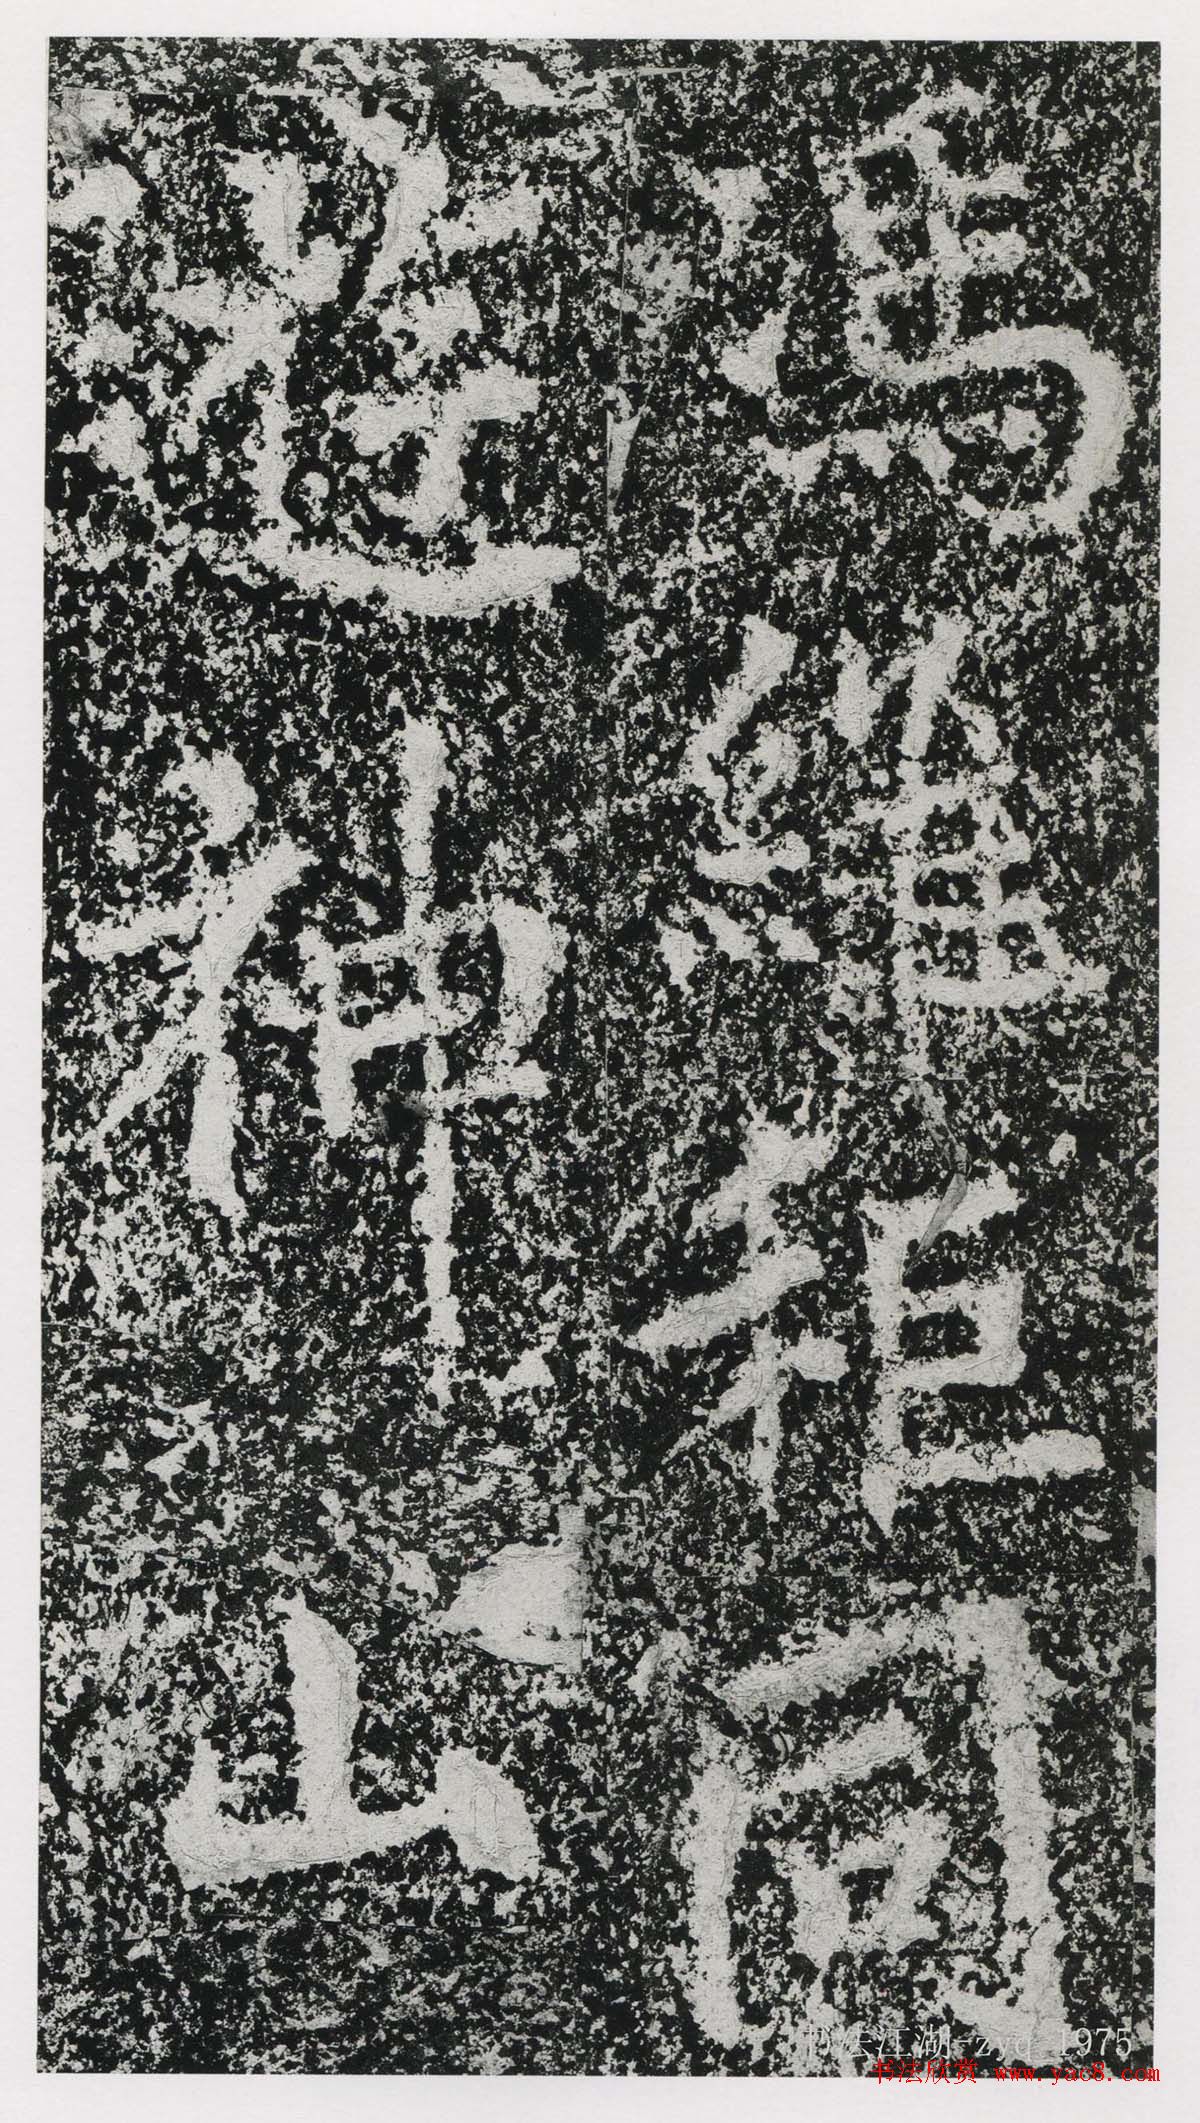 馮維相同
遊神山
书法江湖-zyq_1975
书法欣赏 www.yac8.com